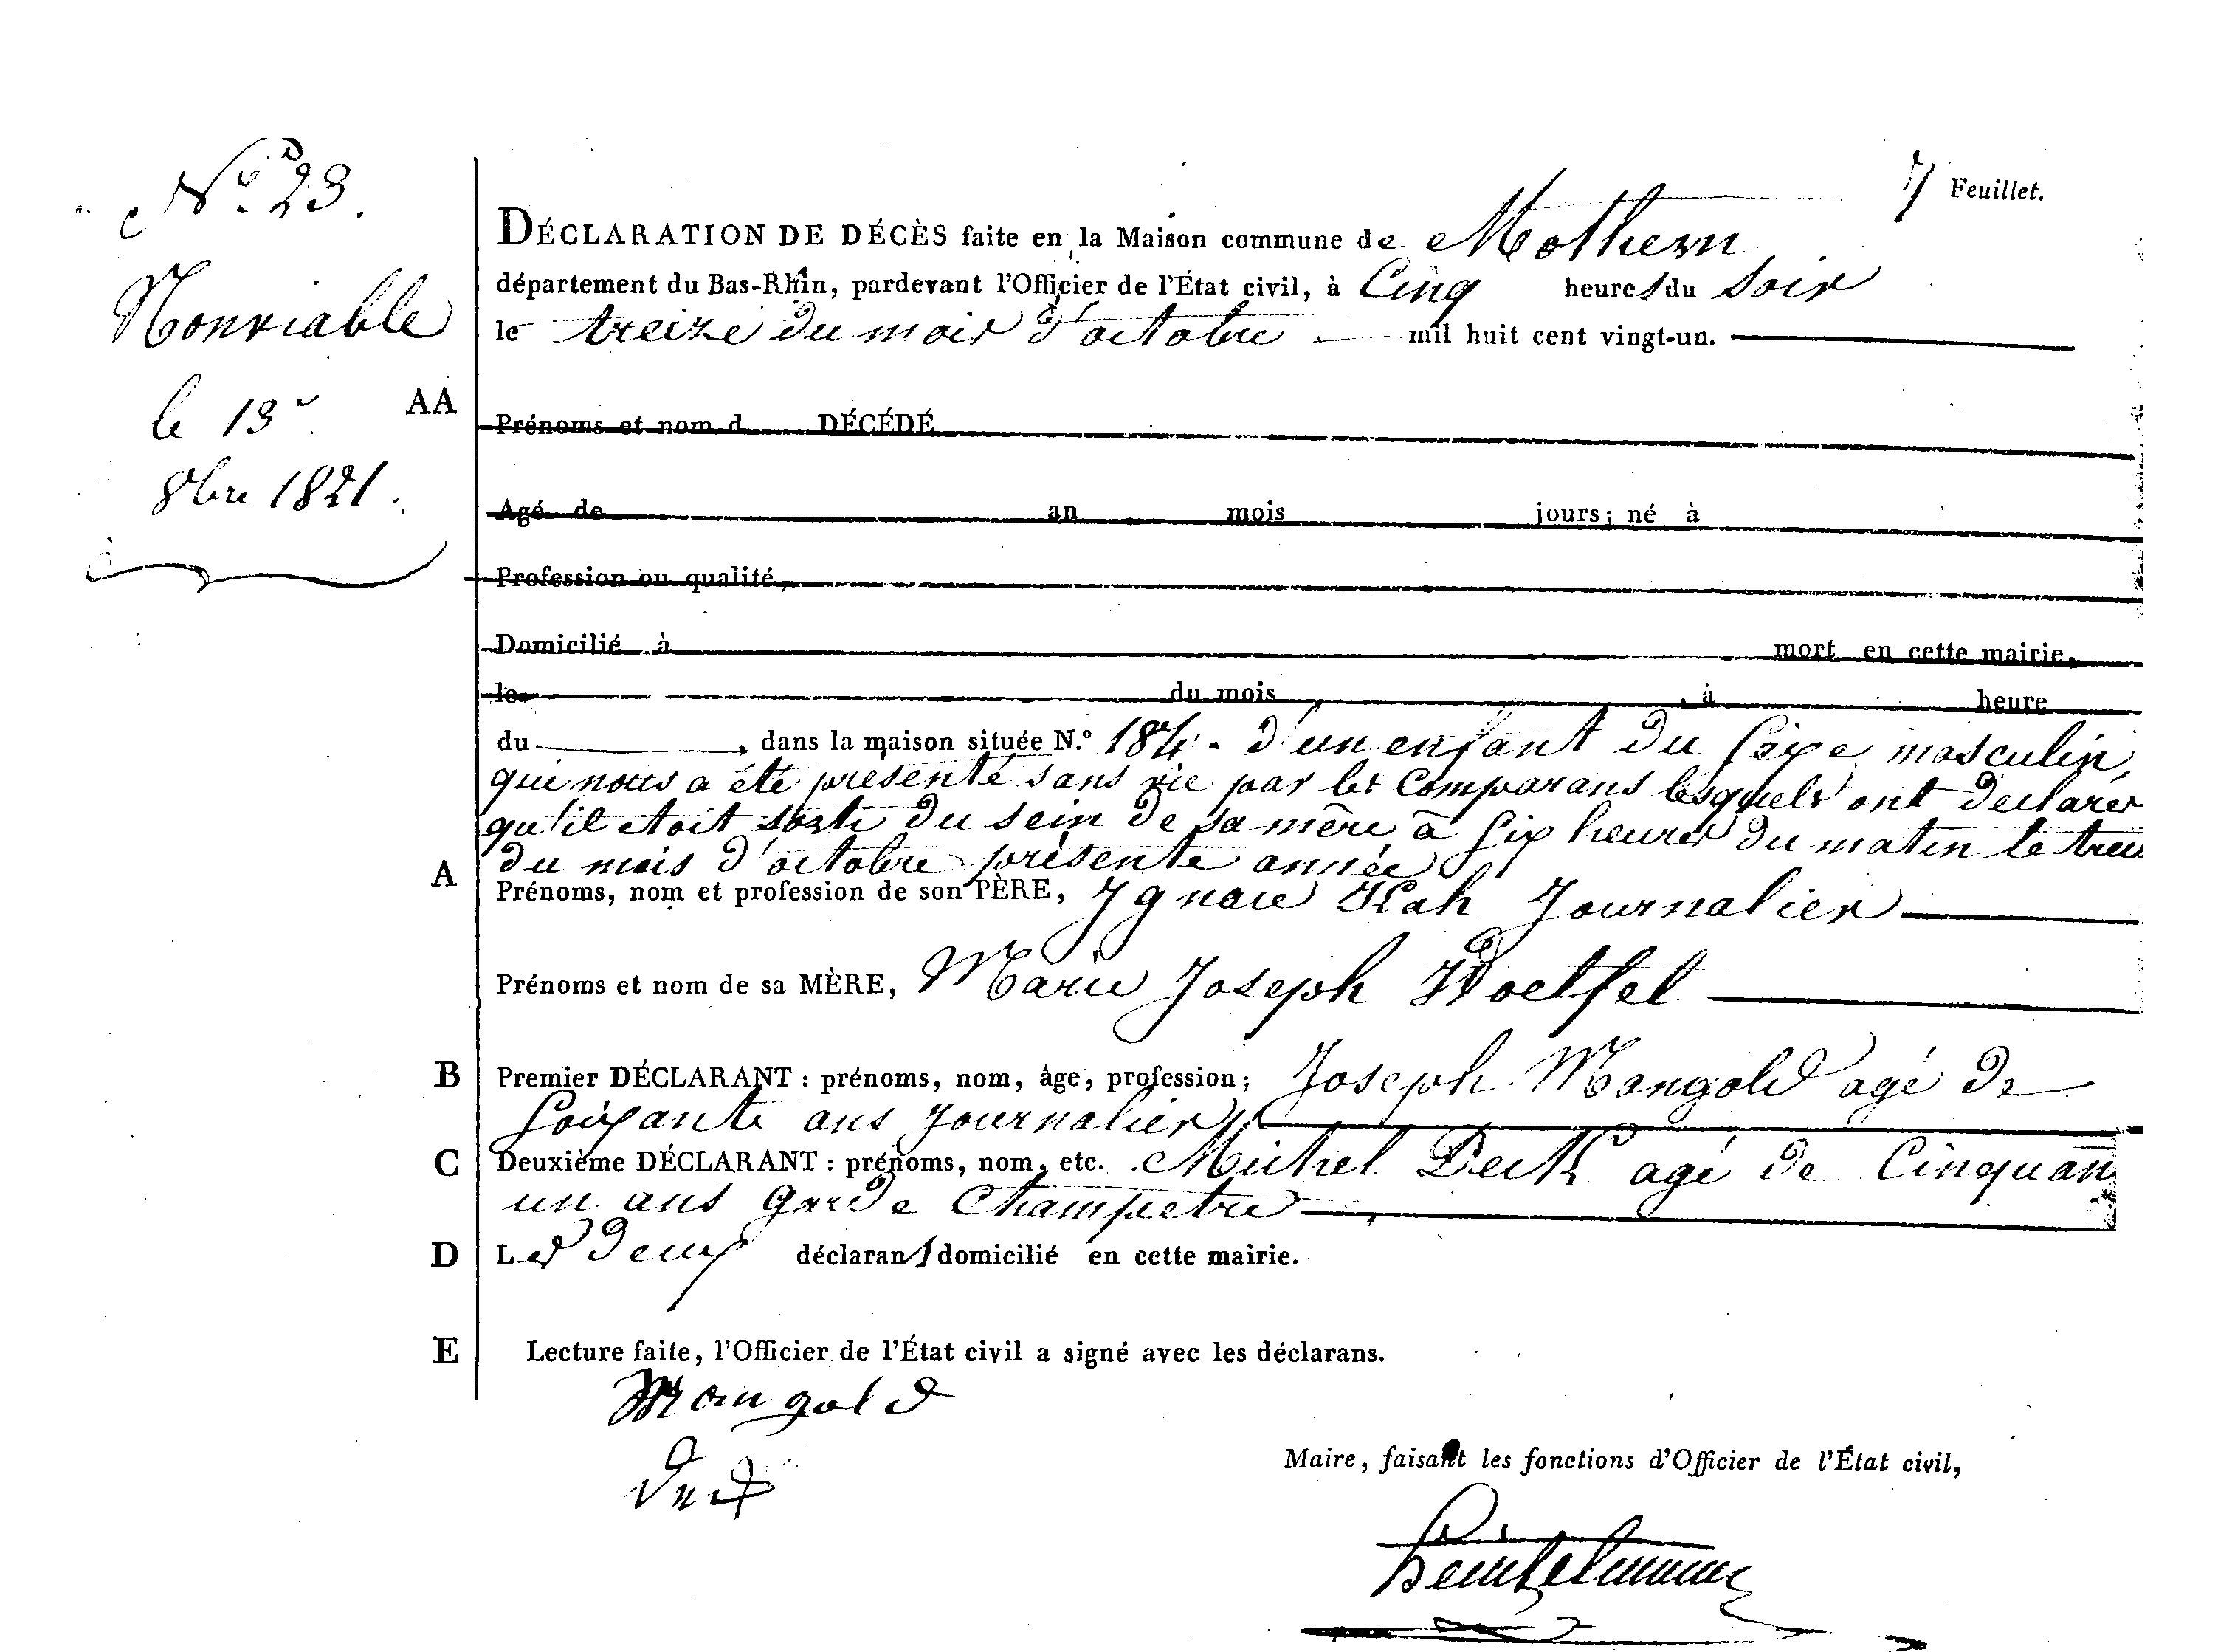 7 Feuillet.
N.º 23.
Nonviable
le 13.
8bre 1821.
DÉCLARATION DE DÉCÈS faite en la Maison commune de Mothern
département du Bas-Rhin, pardevant l'Officier de l'État civil, à Cinq heures du Soir
le treize du mois d'octobre mil huit cent vingt-un.
AA Prénoms et nom d DÉCÉDÉ
Agé de an mois jours; né à
Profession ou qualité,
Domicilié à mort en cette mairie,
le du mois , à heure
du , dans la maison située N.º 184. d'un enfant du sexe masculin,
qui nous a été présenté sans vie par les Comparans lesquels ont declarés
qu'il etoit sorti du sein de sa mère à six heures du matin le trei
du mois d'octobre présente année
A Prénoms, nom et profession de son PÈRE, Ignace Kah Journalier
Prénoms et nom de sa MÈRE, Marie Joseph Woelfel
B Premier DÉCLARANT : prénoms, nom, âge, profession; Joseph Mangold agé de
soixante ans Journalier
C Deuxième DÉCLARANT : prénoms, nom, etc. Michel Deck agé de Cinquan
un ans garde Champetre
D Les deux déclarans domicilié en cette mairie.
E Lecture faite, l'Officier de l'État civil a signé avec les déclarans.
Mangold
Maire, faisant les fonctions d'Officier de l'État civil,